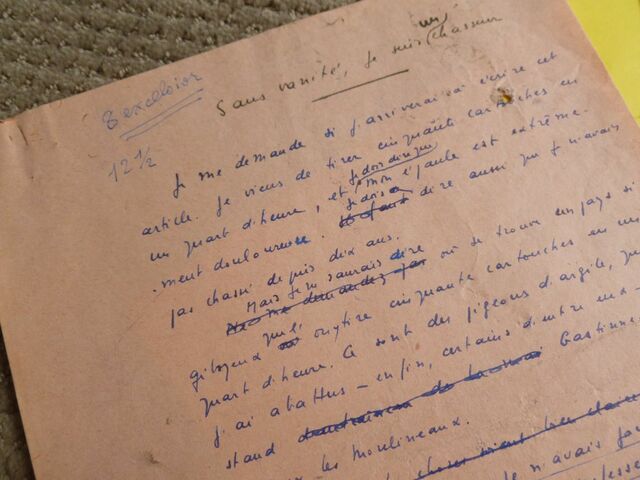 Excelsior
12 1/2
Sans vanité, Je suis un Chasseur
Je me demande si j'arriverai à écrire cet
article. Je viens de tirer cinquante cartouches en
un quart d'heure, et je dois dire que mon épaule est extrême-
-ment douloureuse. Je dois dire aussi que je n'avais
pas chassé depuis dix ans.
Mais je ne saurais dire où se trouve un pays si
giboyeux qu'on y tire cinquante cartouches en un
quart d'heure. Ce sont des pigeons d'argile, que
j'ai abattus - enfin, certains d'entre eux -
stand Gastinne
les Moulineaux.
n'avais